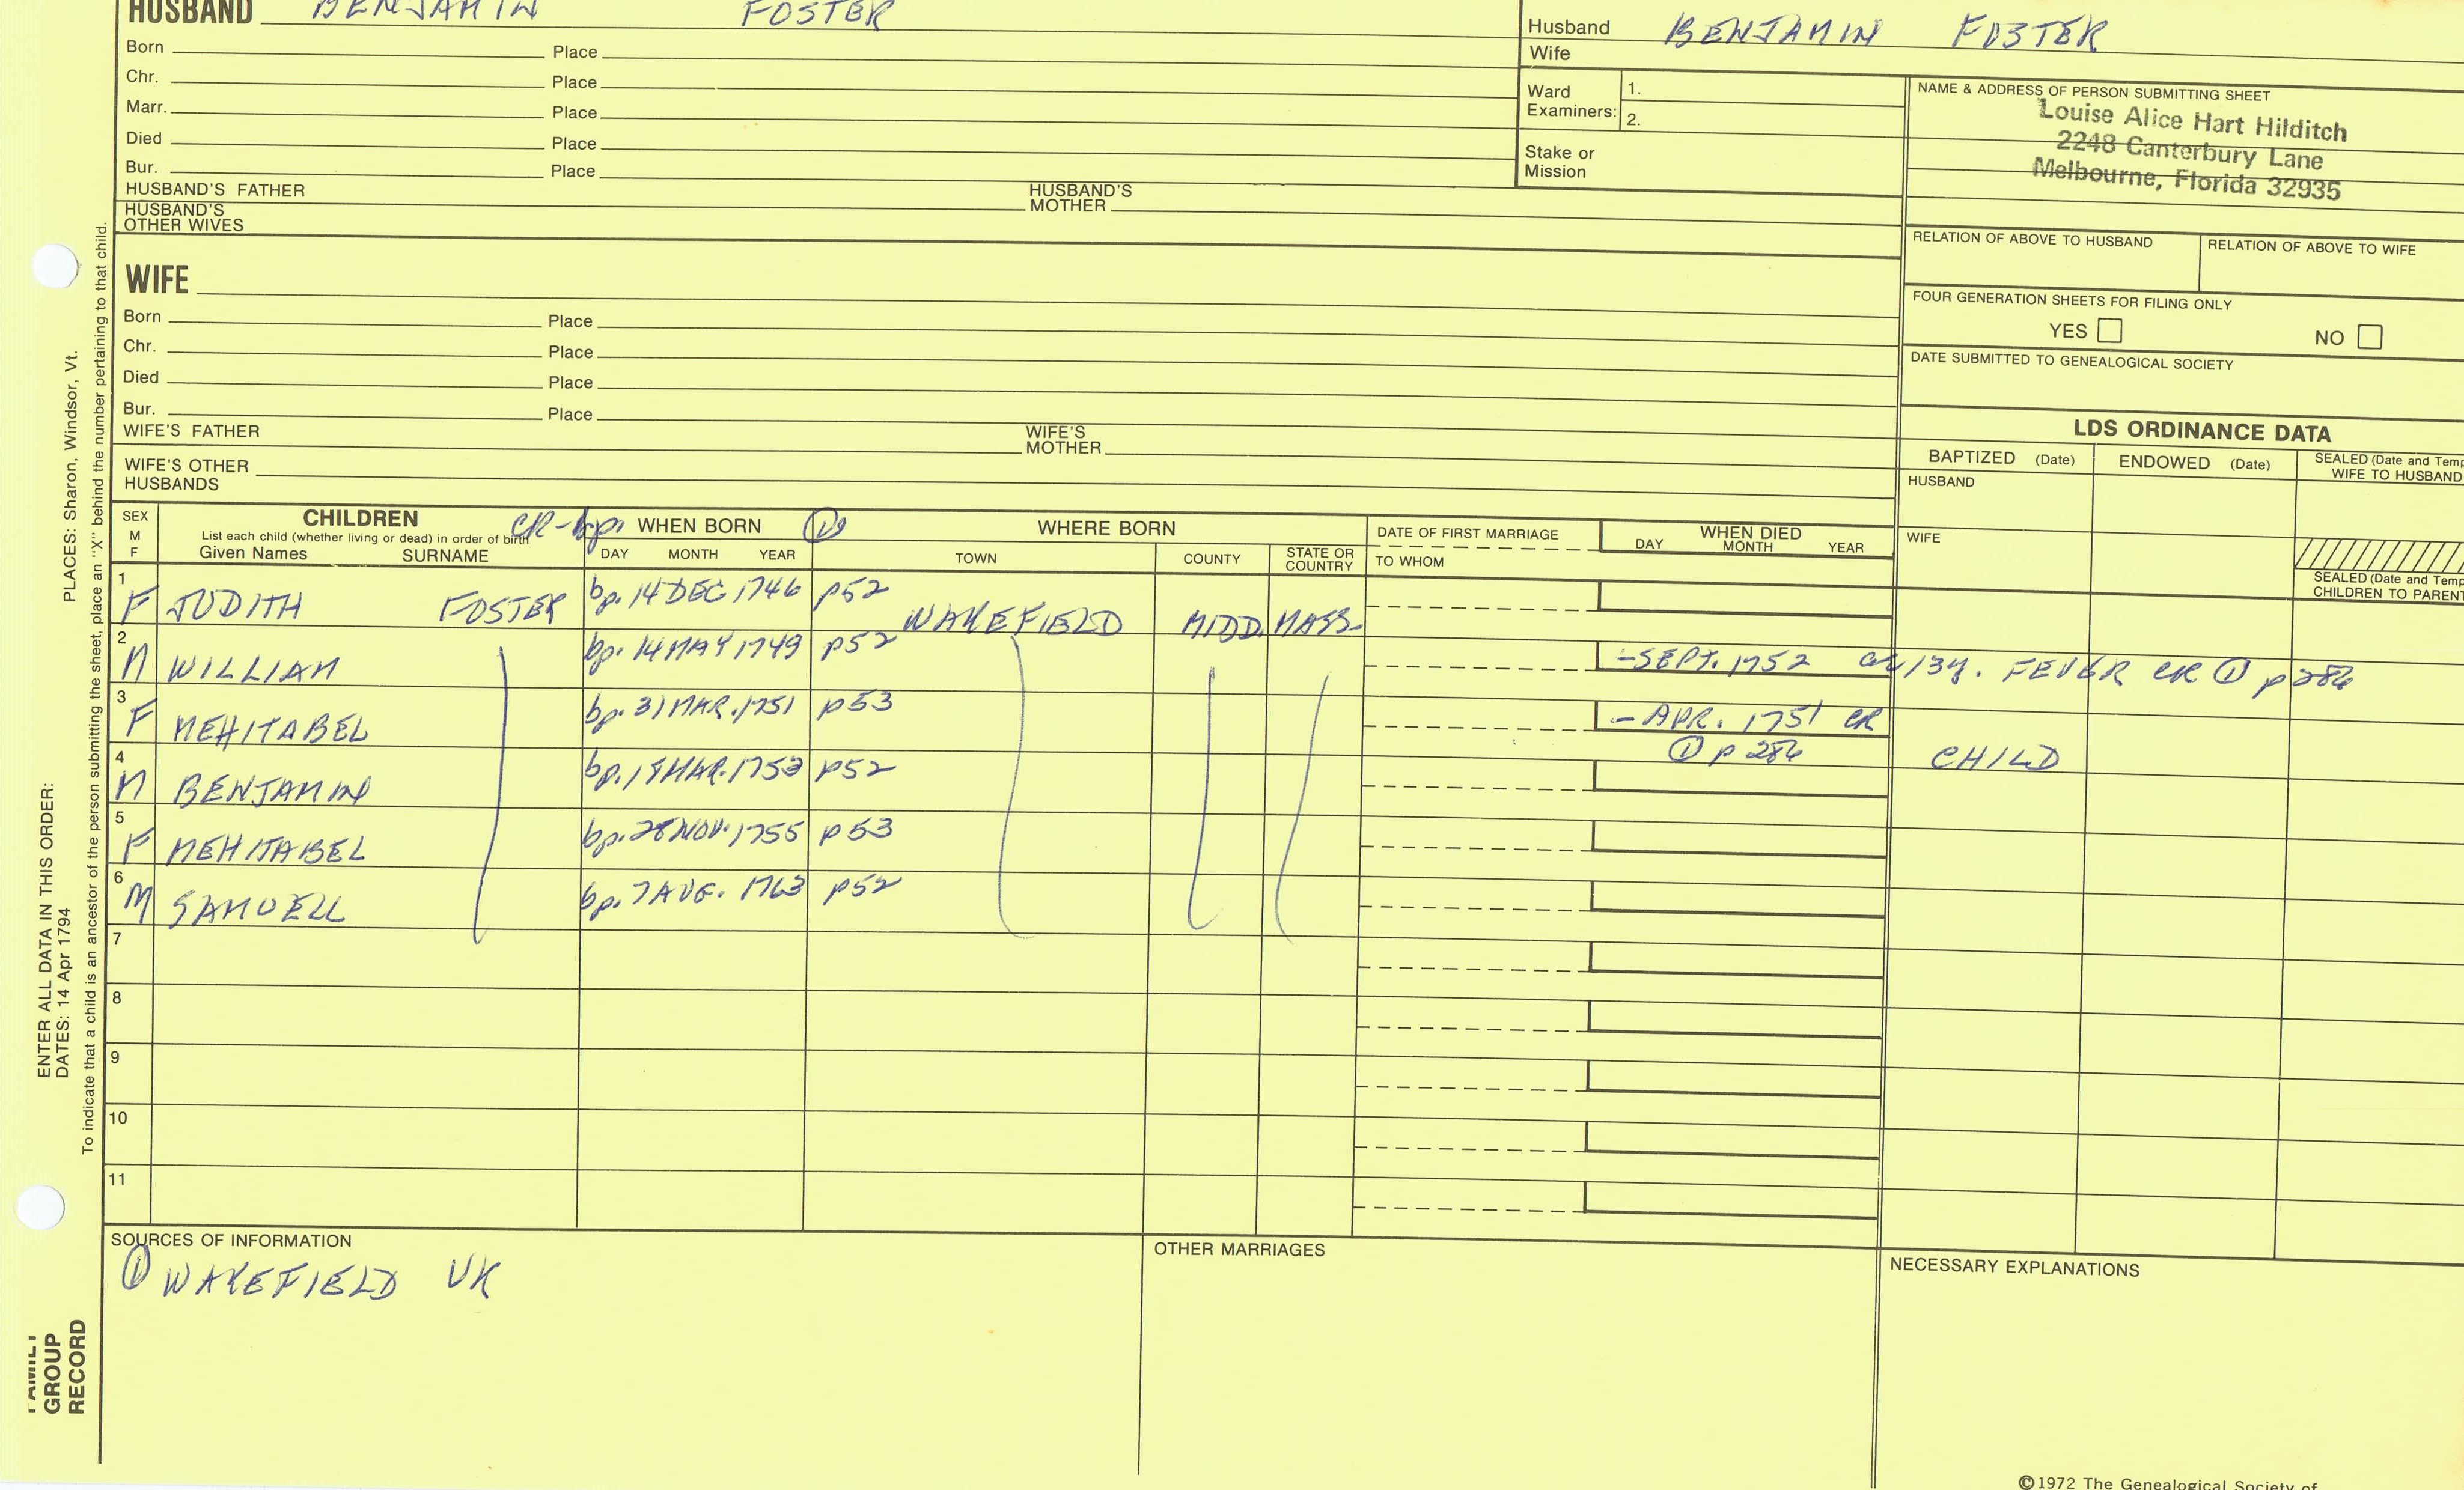 HUSBAND BENJAMIN FOSTER
Born Place
Chr. Place
Marr. Place
Died Place
Bur. Place
HUSBAND'S FATHER HUSBAND'S MOTHER
HUSBAND'S OTHER WIVES
Husband BENJAMIN FOSTER
Wife
Ward Examiners: 1.
2.
Stake or Mission
NAME & ADDRESS OF PERSON SUBMITTING SHEET
Louise Alice Hart Hilditch
2248 Canterbury Lane
Melbourne, Florida 32935
RELATION OF ABOVE TO HUSBAND RELATION OF ABOVE TO WIFE
FOUR GENERATION SHEETS FOR FILING ONLY
YES NO
DATE SUBMITTED TO GENEALOGICAL SOCIETY
WIFE
Born Place
Chr. Place
Died Place
Bur. Place
WIFE'S FATHER WIFE'S MOTHER
WIFE'S OTHER HUSBANDS
LDS ORDINANCE DATA
BAPTIZED (Date) ENDOWED (Date) SEALED (Date and Temp
WIFE TO HUSBAND
HUSBAND
WIFE
SEALED (Date and Temp
CHILDREN TO PARENT
SEX M F
CHILDREN
List each child (whether living or dead) in order of birth
Given Names SURNAME
CR-bp. WHEN BORN ①
DAY MONTH YEAR
WHERE BORN
TOWN COUNTY STATE OR COUNTRY
DATE OF FIRST MARRIAGE
TO WHOM
WHEN DIED
DAY MONTH YEAR
1 F JUDITH FOSTER bp. 14 DEC 1746 p52 WAKEFIELD MIDD. MASS.
2 M WILLIAM bp. 14 MAY 1749 p52 -SEPT. 1752 FEVER CR ① p 286
3 F MEHITABEL bp. 31 MAR. 1751 p53 - APR. 1751 CR
① p 286 CHILD
4 M BENJAMIN MAR. p52
5 F MEHITABEL bp. 28 NOV. 1755 p53
6 M SAMUELL bp. 7 AUG. 1763 p52
7
8
9
10
11
SOURCES OF INFORMATION
① WAKEFIELD VR
OTHER MARRIAGES
NECESSARY EXPLANATIONS
©1972 The Genealogical Society of
PLACES: Sharon, Windsor, Vt.
To indicate that a child is an ancestor of the person submitting the sheet, place an "X" behind the number pertaining to that child.
ENTER ALL DATA IN THIS ORDER:
DATES: 14 Apr 1794
FAMILY
GROUP
RECORD